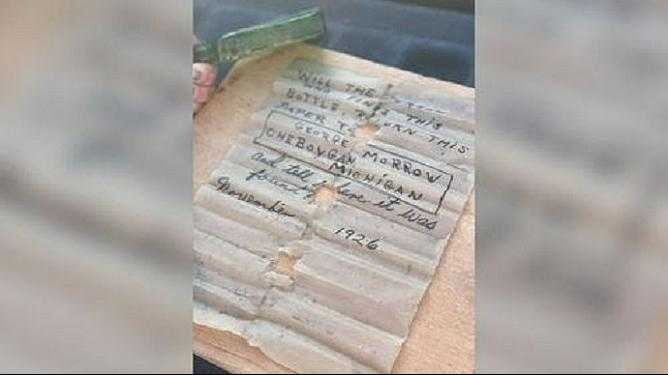 WILL THE
WHO FINDS THIS
BOTTLE RETURN THIS
PAPER TO
GEORGE MORROW
CHEBOYGAN
MICHIGAN
and tell where it was
found?
November
1926